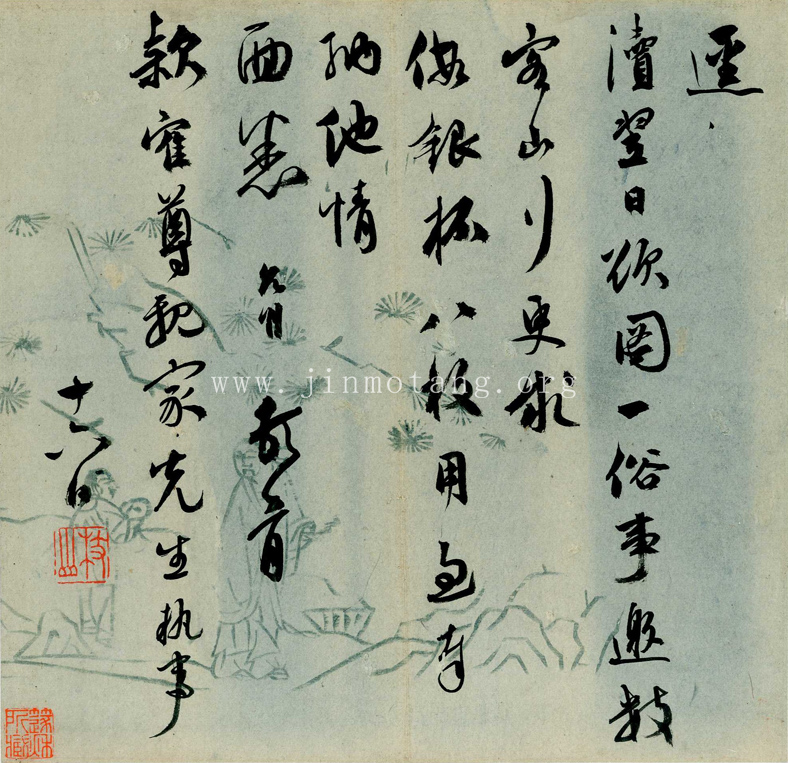 逕
瀆翌日欲圖一俗事邀數
客山行更求
假銀杯八枚用過奉
納他情
面悉 允明 頓首
款隺尊親家先生執事
十六日
枝山
www.jinmotang.org